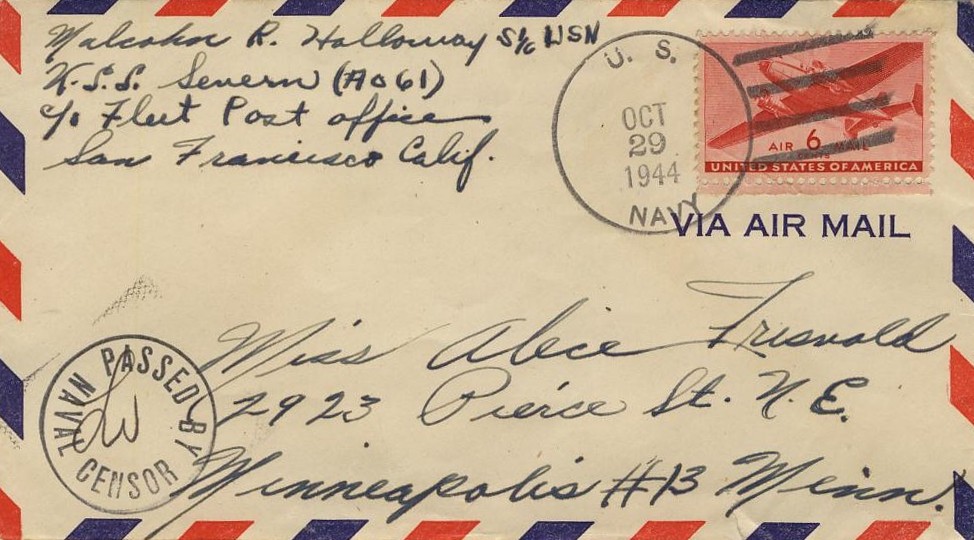 Malcohn R. Holloway S1/c USN
U.S.S. Severn (AO61)
c/o Fleet Post office
San Francisco Calif.
U. S.
OCT
29
1944
NAVY
AIR 6 MAIL
CENTS
UNITED STATES OF AMERICA
VIA AIR MAIL
Miss Alice Frisvold
2923 Pierce St. N.E.
Minneapolis #13 Minn.
PASSED BY
NAVAL CENSOR